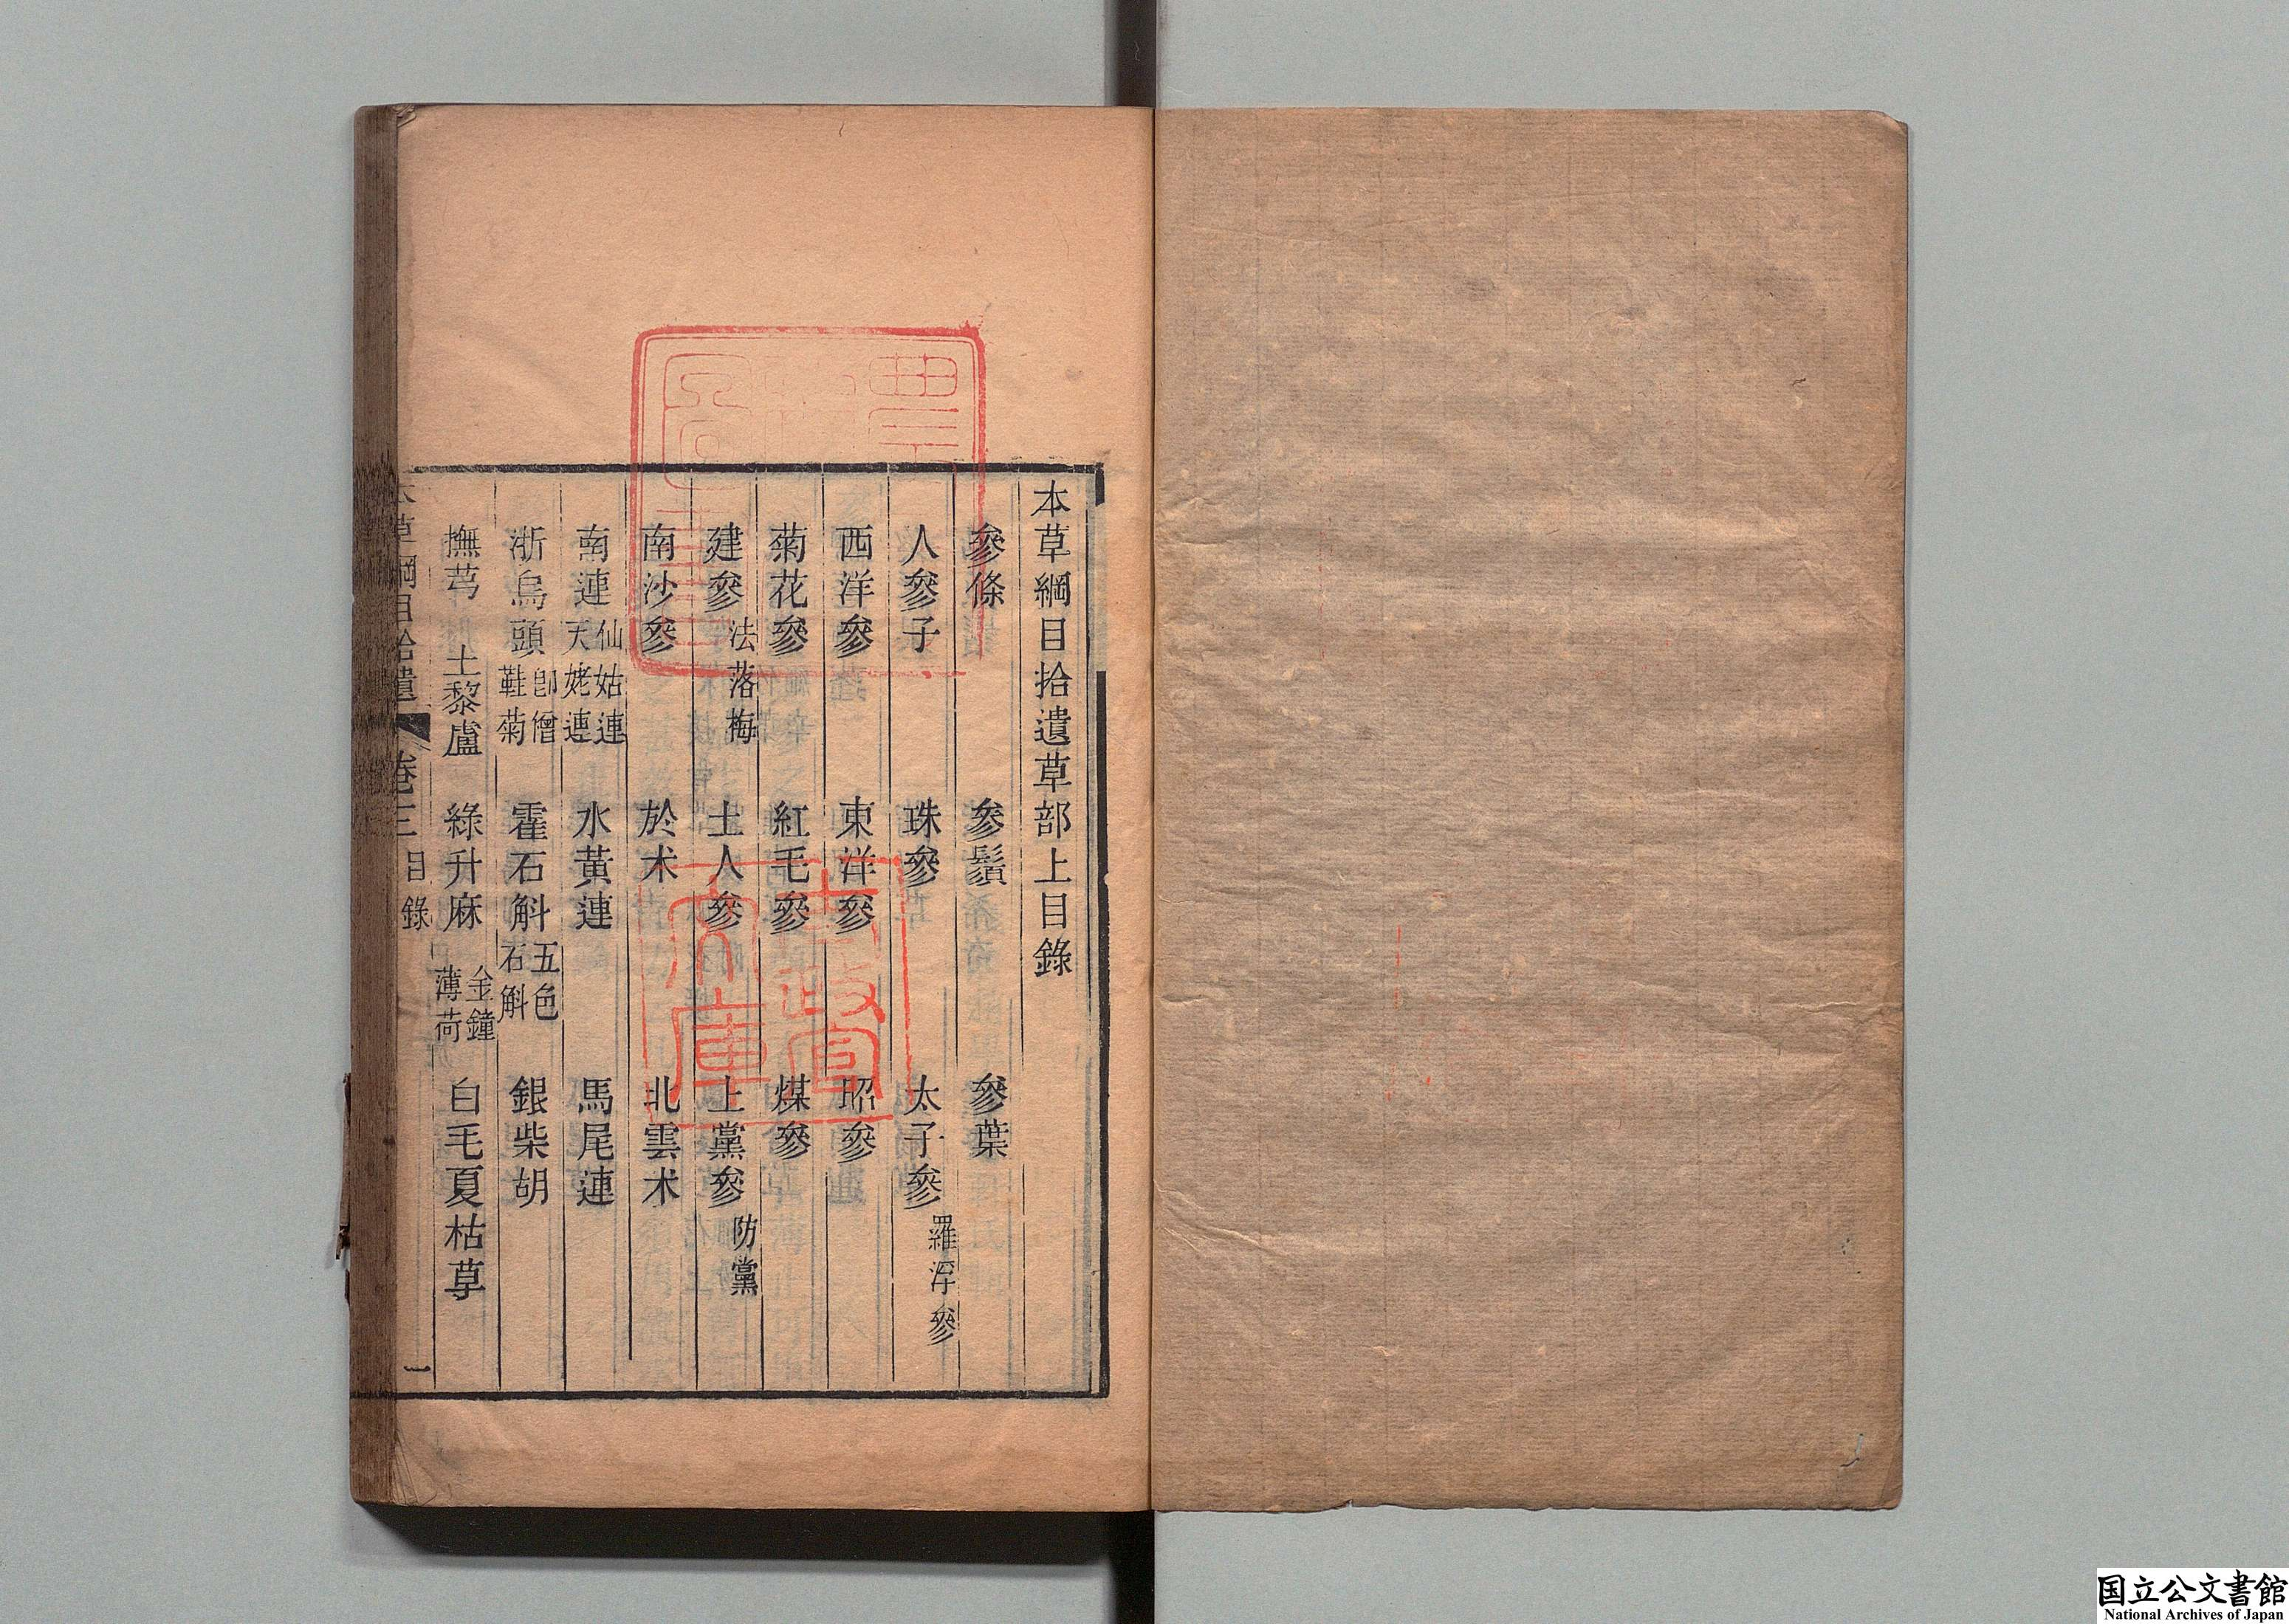 本草綱目拾遺草部上目錄
參條 參鬚 參葉
人參子 珠參 太子參 羅浮參
西洋參 東洋參 昭參
菊花參 紅毛參 煤參
建參 法落梅 土人參 上黨參 防黨
南沙參 於术 北雲术
南連 仙姑連 天姥連 水黃連 馬尾連
浙烏頭 卽僧鞋菊 霍石斛 五色石斛 銀柴胡
撫芎 土黎蘆 綠升麻 金鐘薄荷 白毛夏枯草
本草綱目拾遺 卷三 目錄 一
太政官文庫
国立公文書館
National Archives of Japan